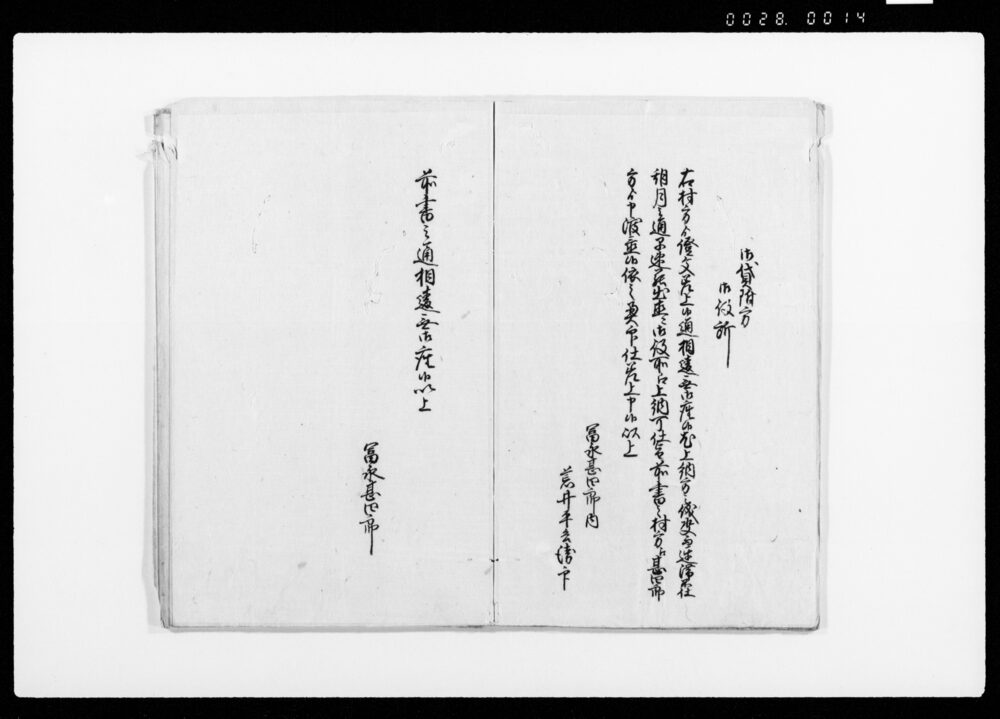 0028. 0014
御貸附方
御役所
右村方ゟ證文差上候通相違無御座候尤上納方之儀聊無遅滞仕
期月之通早速取立之御役所江上納可仕旨前書之村方江甚四郎
方ゟ申渡置候依之奥印仕差上申候以上
冨永甚四郎内
荒井平兵衛印
前書之通相違無御座候以上
冨永甚四郎